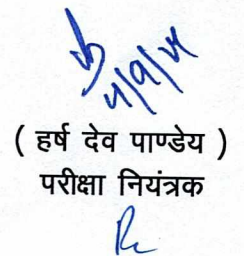 4/9/24
( हर्ष देव पाण्डेय )
परीक्षा नियंत्रक